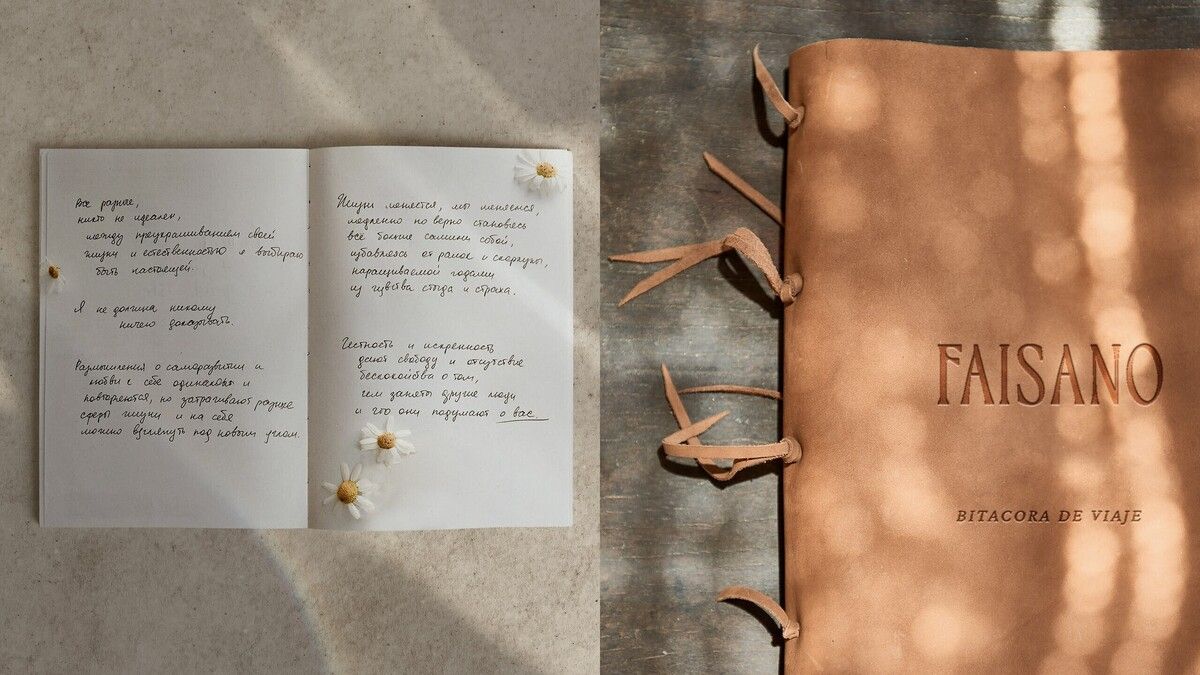 Все разные,
никто не идеален,
между приукрашиванием своей
жизни и естественностью я выбираю
быть настоящей.
Я не должна никому
ничего доказывать.
Размышления о саморазвитии и
любви к себе одинаковы и
повторяются, но затрагивают разные
сферы жизни и на себя
можно взглянуть под новым углом.
Жизнь меняется, мы меняемся,
медленно но верно становясь
всё больше самими собой,
избавляясь от рамок и скорлупы,
наращиваемой годами
из чувства стыда и страха.
Честность и искренность
дают свободу и отсутствие
беспокойства о том,
чем заняты другие люди
и что они подумают о вас.
FAISANO
BITACORA DE VIAJE